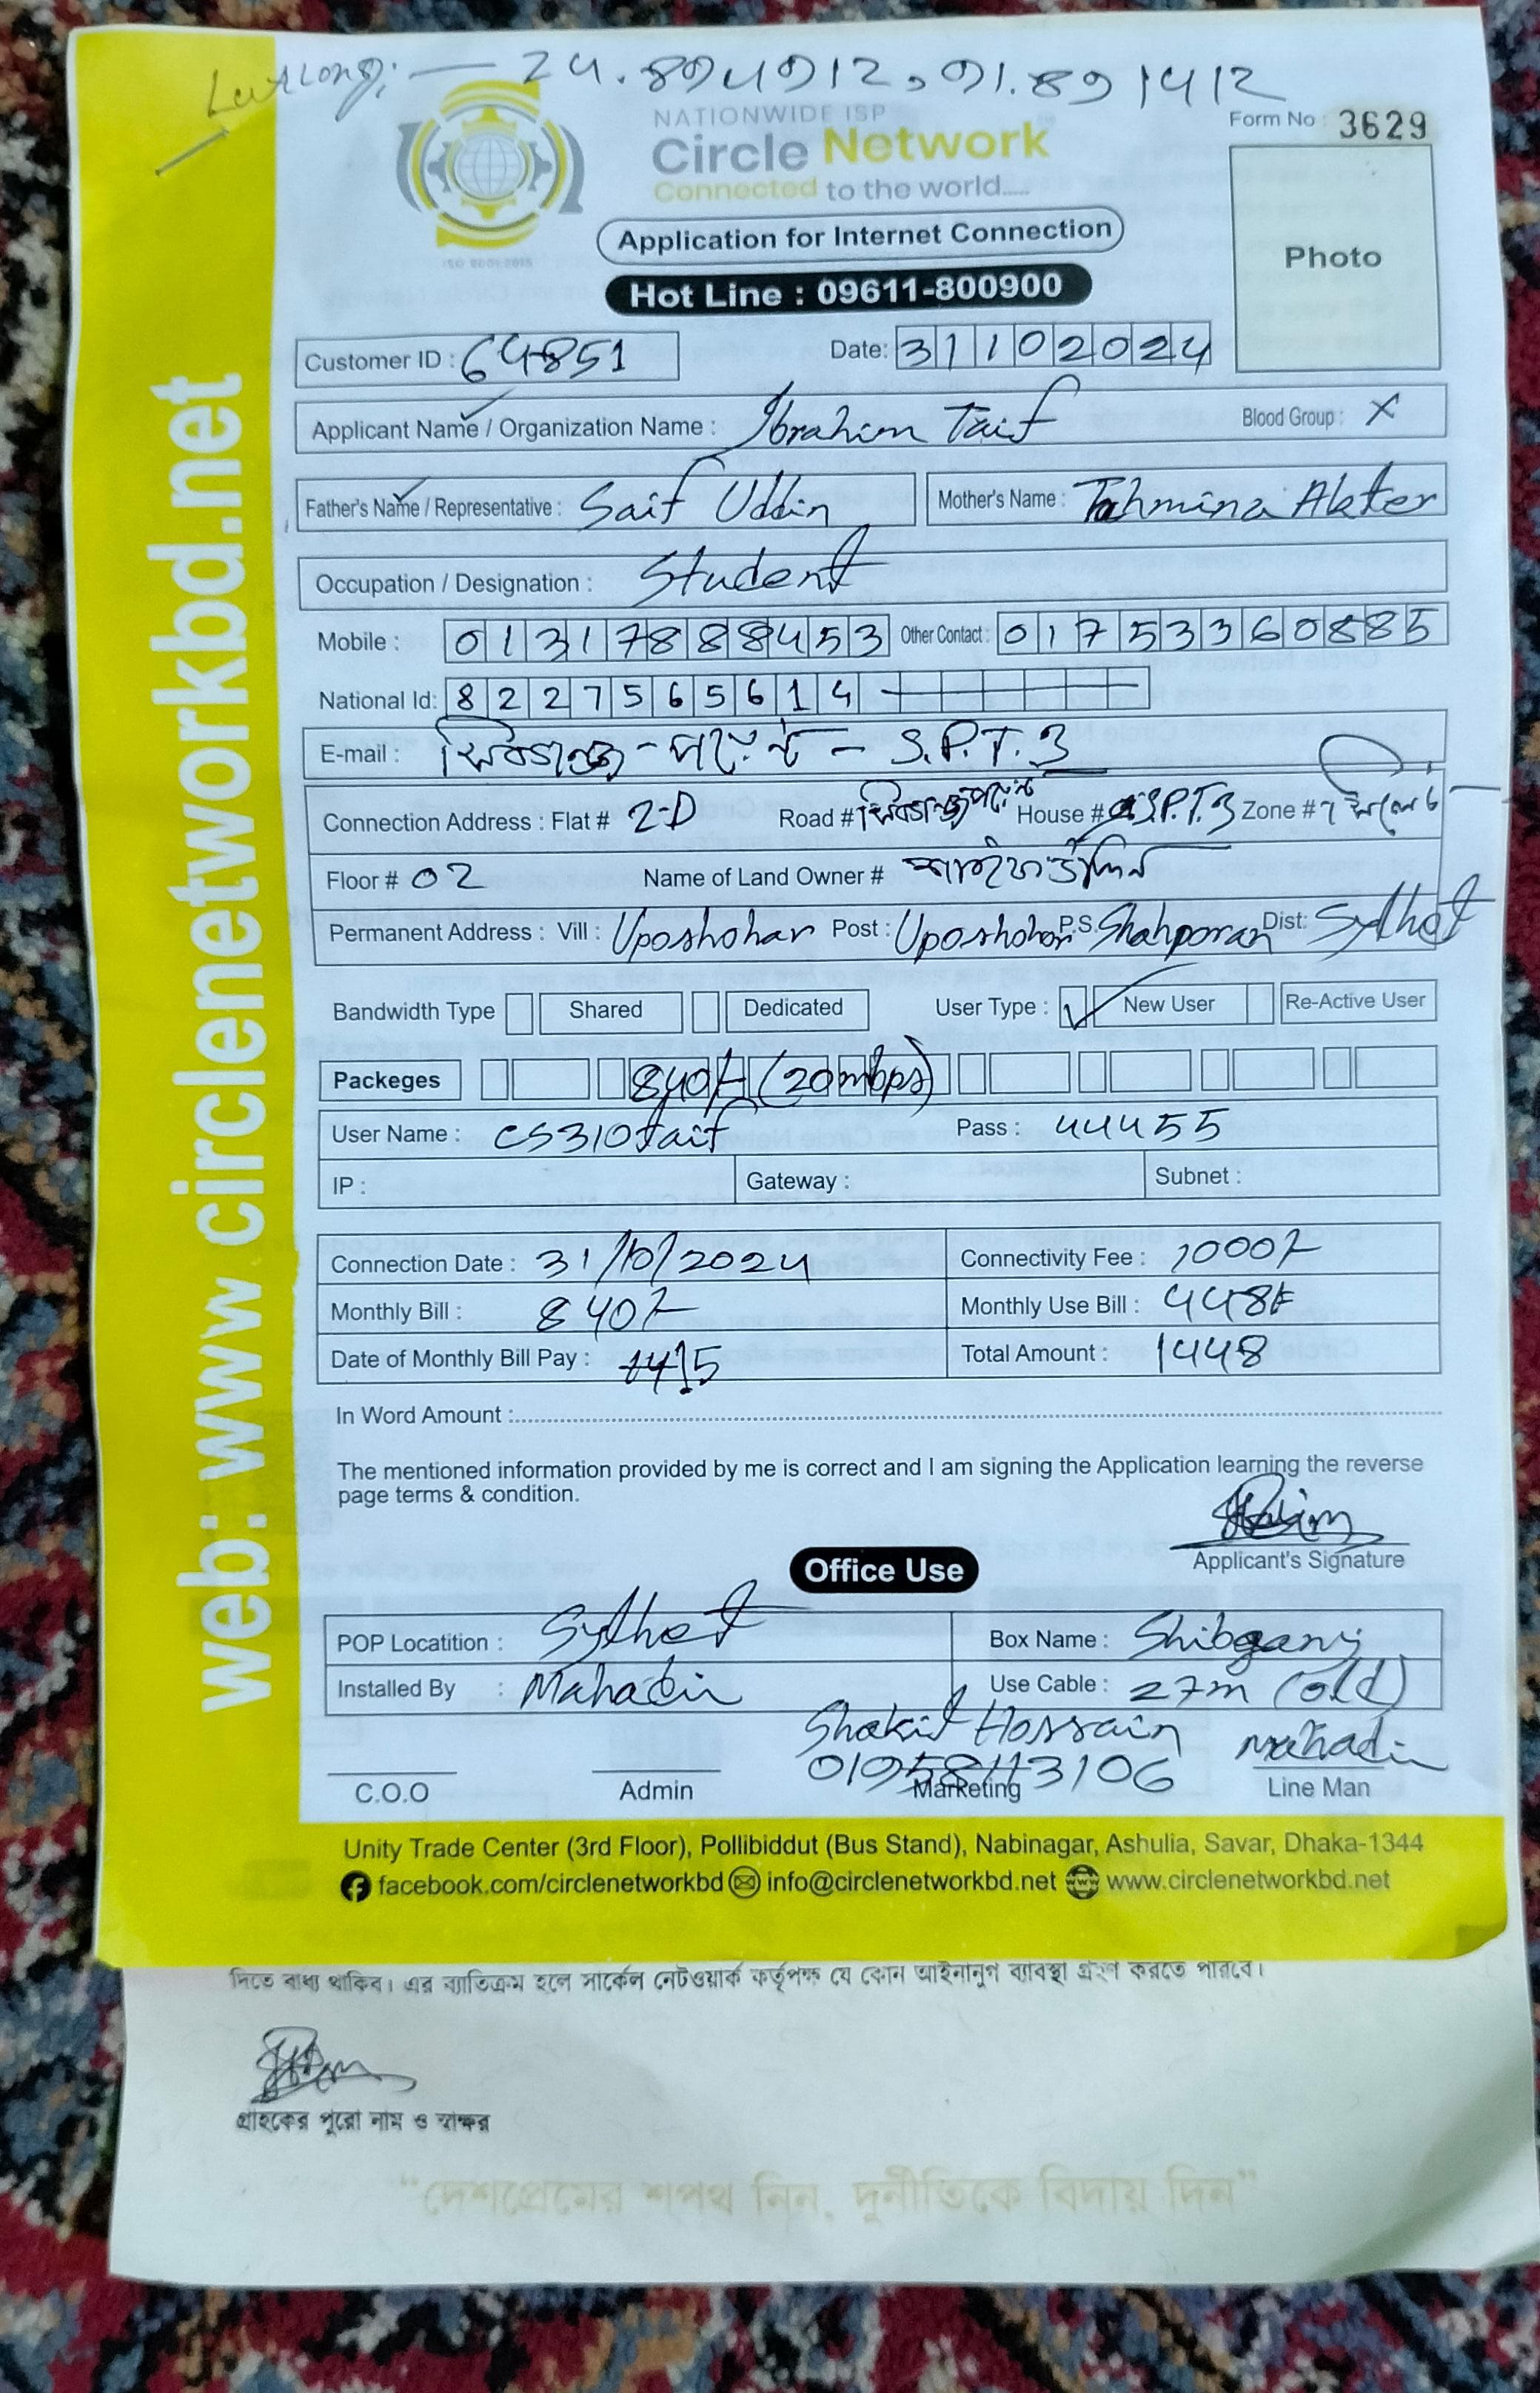 Lat Long: — 24.894912, 91.891412
NATIONWIDE ISP
Circle Network
Connected to the world.....
ISO 9001:2015
Form No : 3629
Photo
Application for Internet Connection
Hot Line : 09611-800900
Customer ID : 64851 Date: 31102024
Applicant Name / Organization Name : Ibrahim Taif Blood Group : X
Father's Name / Representative : Saif Uddin Mother's Name : Tahmina Akter
Occupation / Designation : Student
Mobile : 01317888453 Other Contact : 01753360885
National Id: 8227565614
E-mail : S.P.T. 3
Connection Address : Flat # 2-D Road # House # S.P.T. 3 Zone # সিলেট
Floor # 02 Name of Land Owner #
Permanent Address : Vill : Uposhohar Post : Uposhohor P.S. Shahporan Dist: Sylhet
Bandwidth Type Shared Dedicated User Type : New User Re-Active User
Packeges 840/- (20mbps)
User Name : CS310taif Pass : 44455
IP : Gateway : Subnet :
Connection Date : 31/10/2024 Connectivity Fee : 1000/-
Monthly Bill : 840/- Monthly Use Bill : 448/-
Date of Monthly Bill Pay : 15 Total Amount : 1448
In Word Amount :
The mentioned information provided by me is correct and I am signing the Application learning the reverse
page terms & condition.
Applicant's Signature
Office Use
POP Locatition : Sylhet Box Name : Shibganj
Installed By : Mahadi Use Cable : 27m (old)
Shakil Hossain
01958113106 Mahadi
C.O.O Admin Marketing Line Man
Unity Trade Center (3rd Floor), Pollibiddut (Bus Stand), Nabinagar, Ashulia, Savar, Dhaka-1344
facebook.com/circlenetworkbd info@circlenetworkbd.net www.circlenetworkbd.net
web: www.circlenetworkbd.net
দিতে বাধ্য থাকিব। এর ব্যাতিক্রম হলে সার্কেল নেটওয়ার্ক কর্তৃপক্ষ যে কোন আইনানুগ ব্যাবস্থা গ্রহণ করতে পারবে।
গ্রাহকের পুরো নাম ও স্বাক্ষর
“দেশপ্রেমের শপথ নিন, দুর্নীতিকে বিদায় দিন”